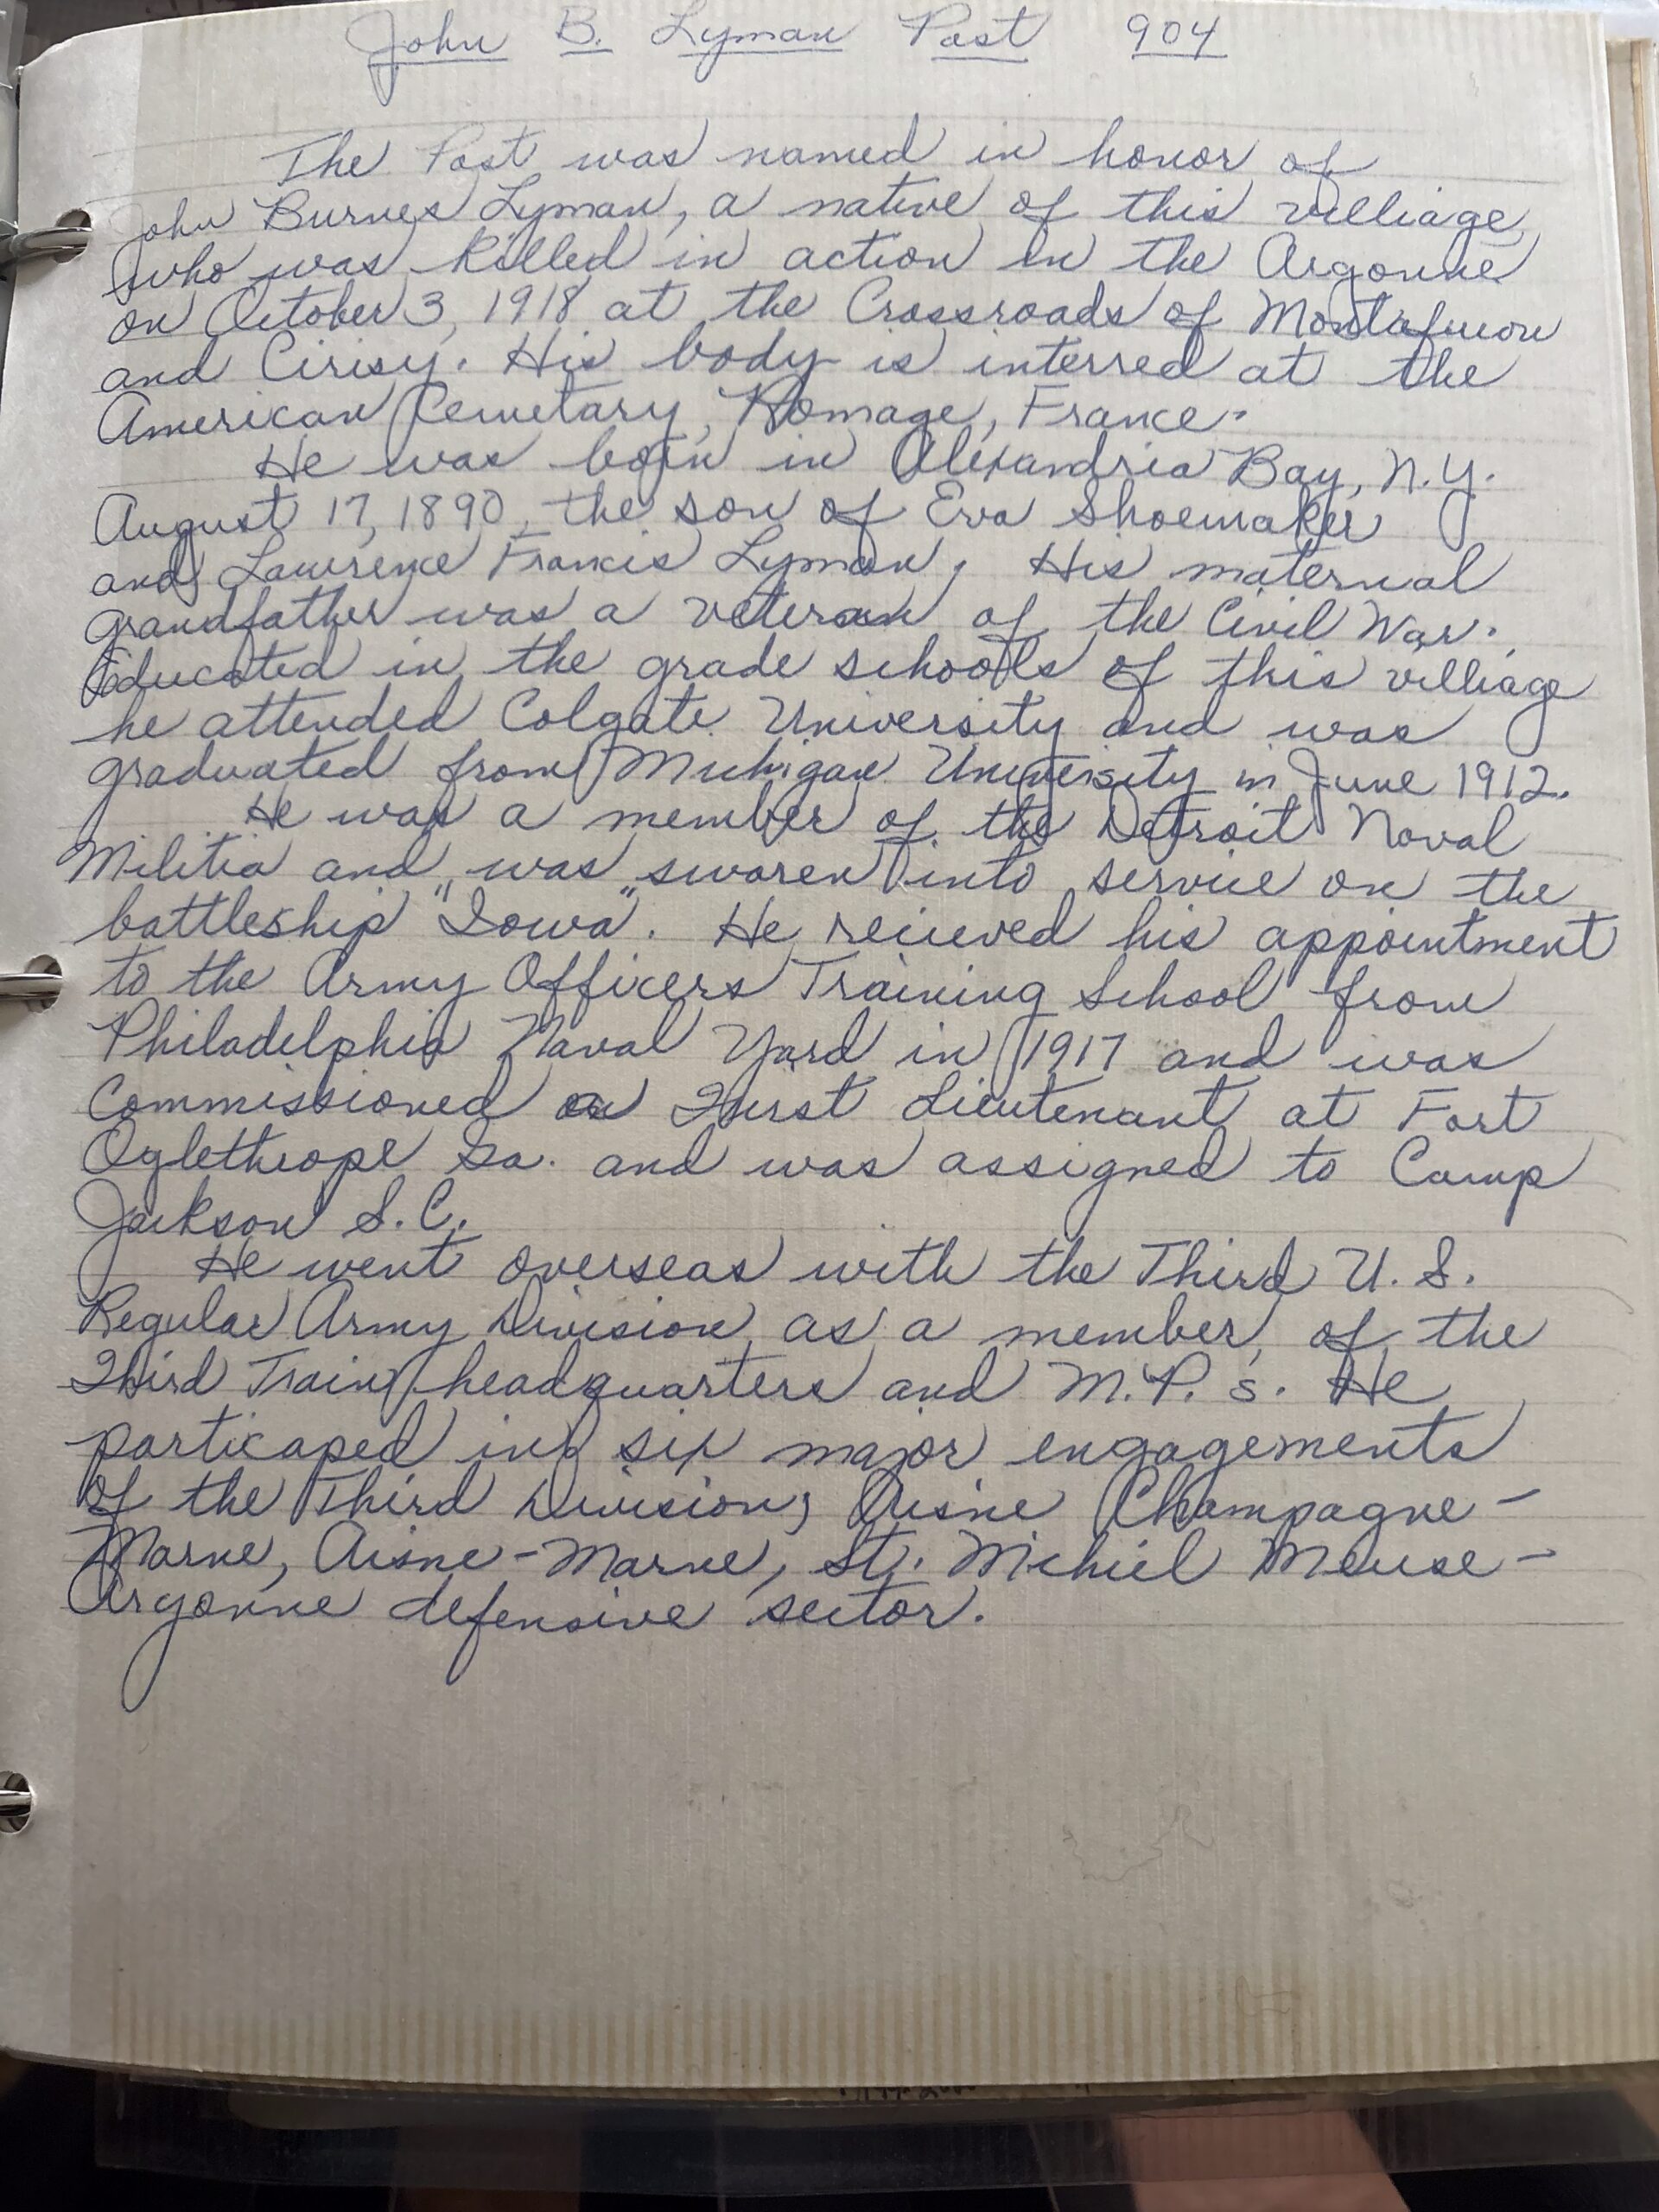 John B. Lyman Post 904
The Post was named in honor of
John Burnes Lyman, a native of this villiage,
who was killed in action in the Argonne
on October 3, 1918 at the Crossroads of Montafucon
and Cirisy. His body is interred at the
American Cemetary, Romage, France.
He was born in Alexandria Bay, N.Y.
August 17, 1890, the son of Eva Shoemaker
and Lawrence Francis Lyman, His maternal
grandfather was a veteran of the Civil War.
Educated in the grade schools of this villiage
he attended Colgate University and was
graduated from Michigan University in June 1912.
He was a member of the Detroit Naval
Militia and was sworen into service on the
battleship "Iowa". He recieved his appointment
to the Army Officers Training School from
Philadelphia Naval Yard in 1917 and was
Commissioned as First Lieutenant at Fort
Oglethrope Ga. and was assigned to Camp
Jackson S.C.
He went overseas with the Third U.S.
Regular Army Division as a member of the
Third Train headquarters and M.P.s. He
particaped in six major engagements
of the Third Division; Aisne Champagne-
Marne, Aisne-Marne, St. Michiel Meuse-
Argonne defensive sector.